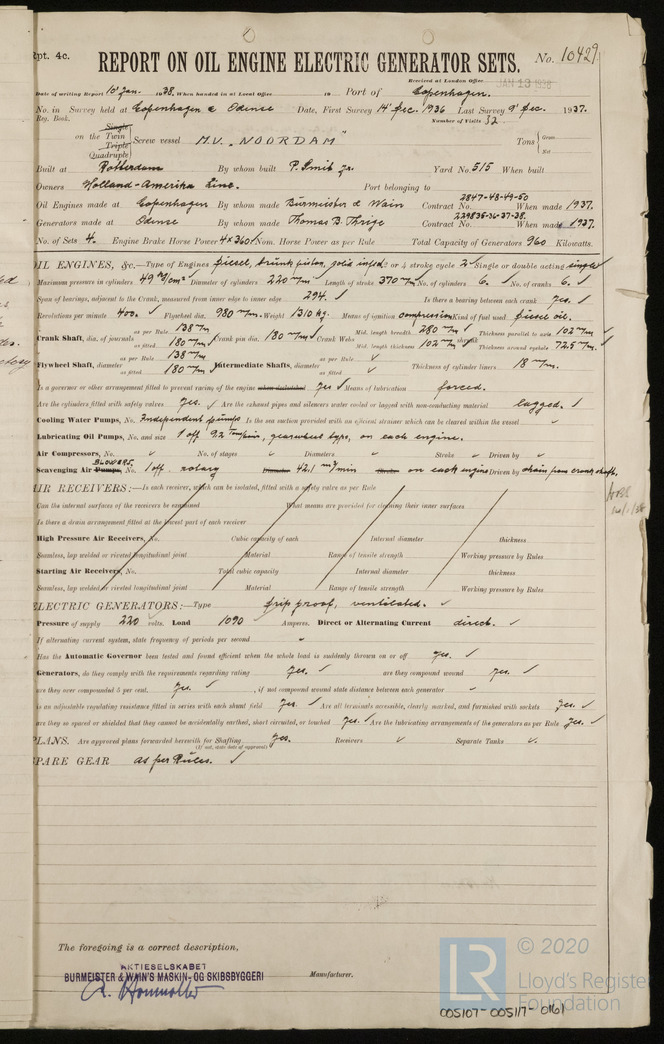 Rpt. 4c.
REPORT ON OIL ENGINE ELECTRIC GENERATOR SETS. No. 10429
Received at London Office JAN 13 1938
Date of writing Report 10 Jan. 1938. When handed in at Local Office 19 Port of Copenhagen.
No. in Reg. Book. Survey held at Copenhagen & Odense Date, First Survey 14 Dec. 1936 Last Survey 9 Dec. 1937.
Number of Visits 32
on the Single Twin Triple Quadruple Screw vessel M.V. "NOORDAM" Tons Gross Net
Built at Rotterdam By whom built P. Smit Jr. Yard No. 515 When built
Owners Holland-Amerika Line. Port belonging to
Oil Engines made at Copenhagen By whom made Burmeister & Wain Contract No. 2847-48-49-50 When made 1937.
Generators made at Odense By whom made Thomas B. Thrige Contract No. 229835-36-37-38. When made 1937.
No. of Sets 4. Engine Brake Horse Power 4x360 Nom. Horse Power as per Rule Total Capacity of Generators 960 Kilowatts.
OIL ENGINES, &c.—Type of Engines Diesel, trunk piston, solid inject. 2 or 4 stroke cycle 2 Single or double acting single
Maximum pressure in cylinders 49 kg/cm² Diameter of cylinders 220 m/m Length of stroke 370 m/m No. of cylinders 6. No. of cranks 6.
Span of bearings, adjacent to the Crank, measured from inner edge to inner edge 294. Is there a bearing between each crank yes.
Revolutions per minute 400. Flywheel dia. 980 m/m. Weight 1310 kg. Means of ignition compression Kind of fuel used Diesel oil.
Crank Shaft, dia. of journals as per Rule 138 m/m as fitted 180 m/m Crank pin dia. 180 m/m Crank Webs Mid. length breadth 280 m/m Mid. length thickness 102 m/m Thickness parallel to axis 102 m/m Thickness around eyehole 72.5 m/m.
Flywheel Shaft, diameter as per Rule 138 m/m as fitted 180 m/m Intermediate Shafts, diameter as per Rule as fitted Thickness of cylinder liners 18 m/m.
Is a governor or other arrangement fitted to prevent racing of the engine when declutched yes Means of lubrication forced.
Are the cylinders fitted with safety valves yes. Are the exhaust pipes and silencers water cooled or lagged with non-conducting material lagged.
Cooling Water Pumps, No. Independent pumps Is the sea suction provided with an efficient strainer which can be cleared within the vessel
Lubricating Oil Pumps, No. and size 1 off 9.2 gearwheel type, on each engine.
Air Compressors, No. No. of stages Diameters Stroke Driven by
Scavenging Air Pumps, BLOWERS, No. 1 off. rotary Diameter 42.1 m³/min Stroke on each engine Driven by chain from crank shaft.
AIR RECEIVERS:—Is each receiver, which can be isolated, fitted with a safety valve as per Rule
Can the internal surfaces of the receivers be examined What means are provided for cleaning their inner surfaces
Is there a drain arrangement fitted at the lowest part of each receiver
High Pressure Air Receivers, No. Cubic capacity of each Internal diameter thickness
Seamless, lap welded or riveted longitudinal joint Material Range of tensile strength Working pressure by Rules
Starting Air Receivers, No. Total cubic capacity Internal diameter thickness
Seamless, lap welded or riveted longitudinal joint Material Range of tensile strength Working pressure by Rules
ELECTRIC GENERATORS:—Type drip proof, ventilated.
Pressure of supply 220 volts. Load 1090 Amperes. Direct or Alternating Current direct.
If alternating current system, state frequency of periods per second
Has the Automatic Governor been tested and found efficient when the whole load is suddenly thrown on or off yes.
Generators, do they comply with the requirements regarding rating yes. are they compound wound yes.
are they over compounded 5 per cent. yes. , if not compound wound state distance between each generator
is an adjustable regulating resistance fitted in series with each shunt field yes. Are all terminals accessible, clearly marked, and furnished with sockets yes.
are they so spaced or shielded that they cannot be accidentally earthed, short circuited, or touched yes. Are the lubricating arrangements of the generators as per Rule yes.
PLANS. Are approved plans forwarded herewith for Shafting yes. Receivers Separate Tanks
(If not, state date of approval)
SPARE GEAR as per Rules.
The foregoing is a correct description,
AKTIESELSKABET
BURMEISTER & WAIN'S MASKIN- OG SKIBSBYGGERI Manufacturer.
LR © 2020
Lloyd's Register
Foundation
005107-005117-0161